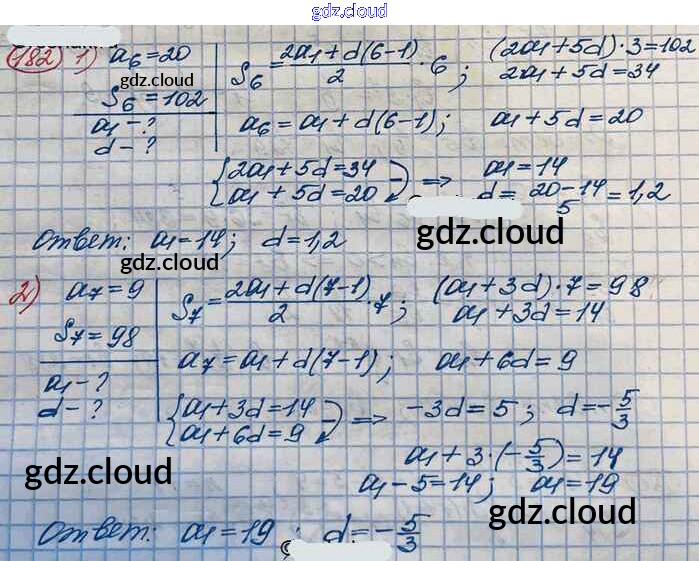 gdz.cloud
182) 1) a₆ = 20
S₆ = 102
a₁ - ?
d - ?
S₆ = (2a₁ + d(6-1))/2 · 6; (2a₁ + 5d) · 3 = 102
2a₁ + 5d = 34
a₆ = a₁ + d(6-1); a₁ + 5d = 20
{2a₁ + 5d = 34
{a₁ + 5d = 20 ⇒ a₁ = 14
d = (20-14)/5 = 1,2
Ответ: a₁ = 14; d = 1,2
gdz.cloud
gdz.cloud
2) a₇ = 9
S₇ = 98
a₁ - ?
d - ?
S₇ = (2a₁ + d(7-1))/2 · 7; (a₁ + 3d) · 7 = 98
a₁ + 3d = 14
a₇ = a₁ + d(7-1); a₁ + 6d = 9
{a₁ + 3d = 14
{a₁ + 6d = 9 ⇒ -3d = 5; d = -5/3
a₁ + 3 · (-5/3) = 14
a₁ - 5 = 14; a₁ = 19
gdz.cloud
gdz.cloud
Ответ: a₁ = 19; d = -5/3